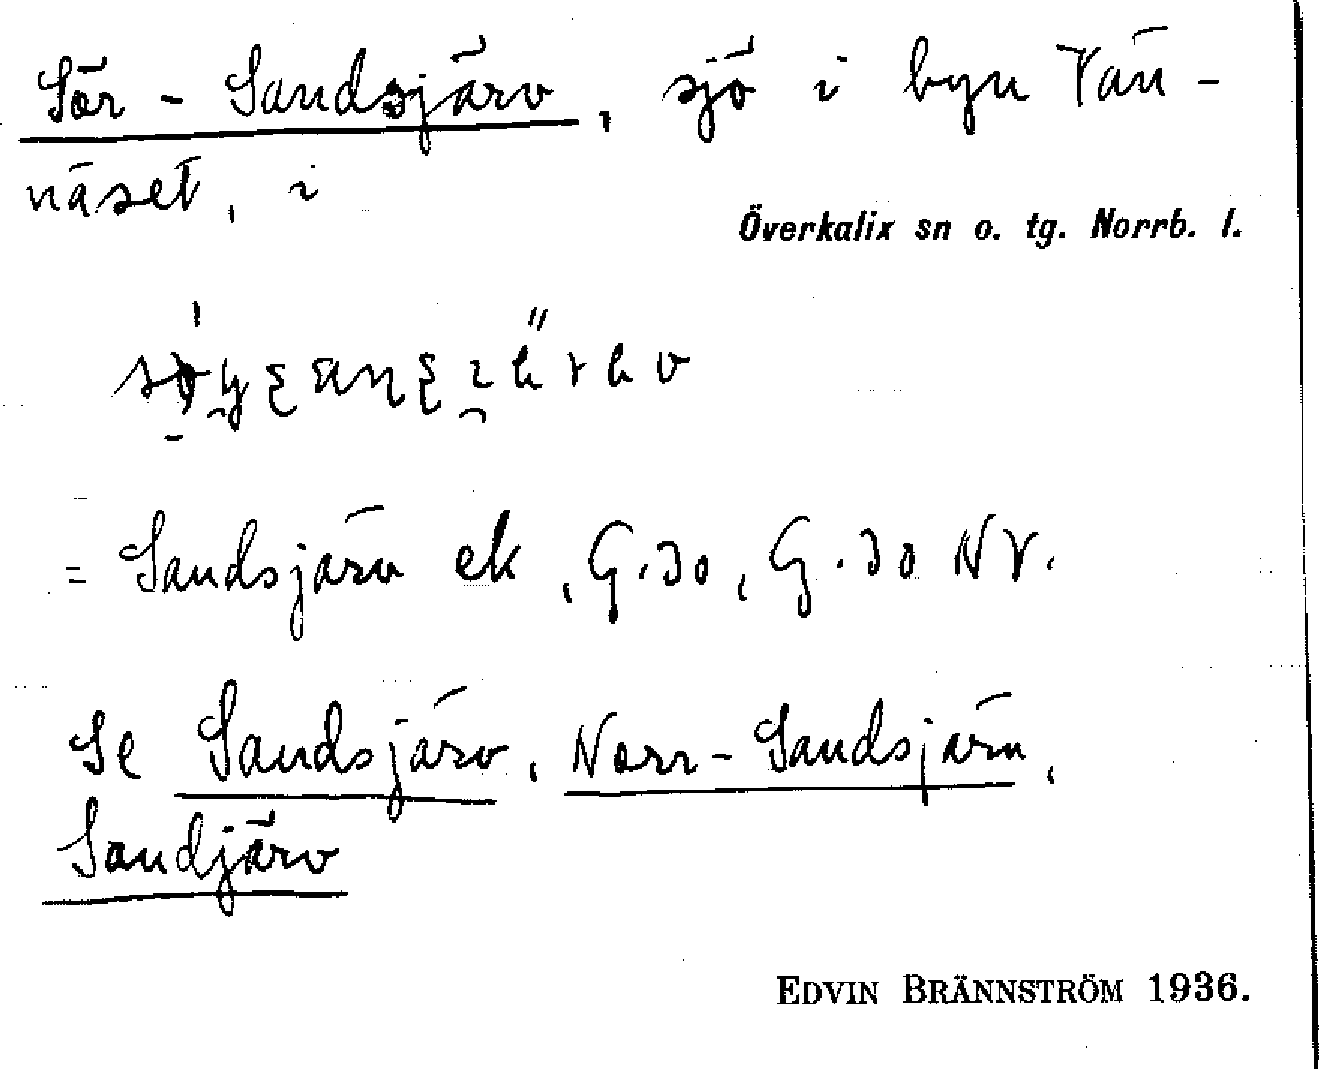 Sör - Sandsjärv, sjö i byn Vän-
näset, i
Överkalix sn o. tg. Norrb. l.
= Sandsjärv ek, G.30, G.30 NV.
Se Sandsjärv, Norr-Sandsjärv,
Sandjärv
EDVIN BRÄNNSTRÖM 1936.